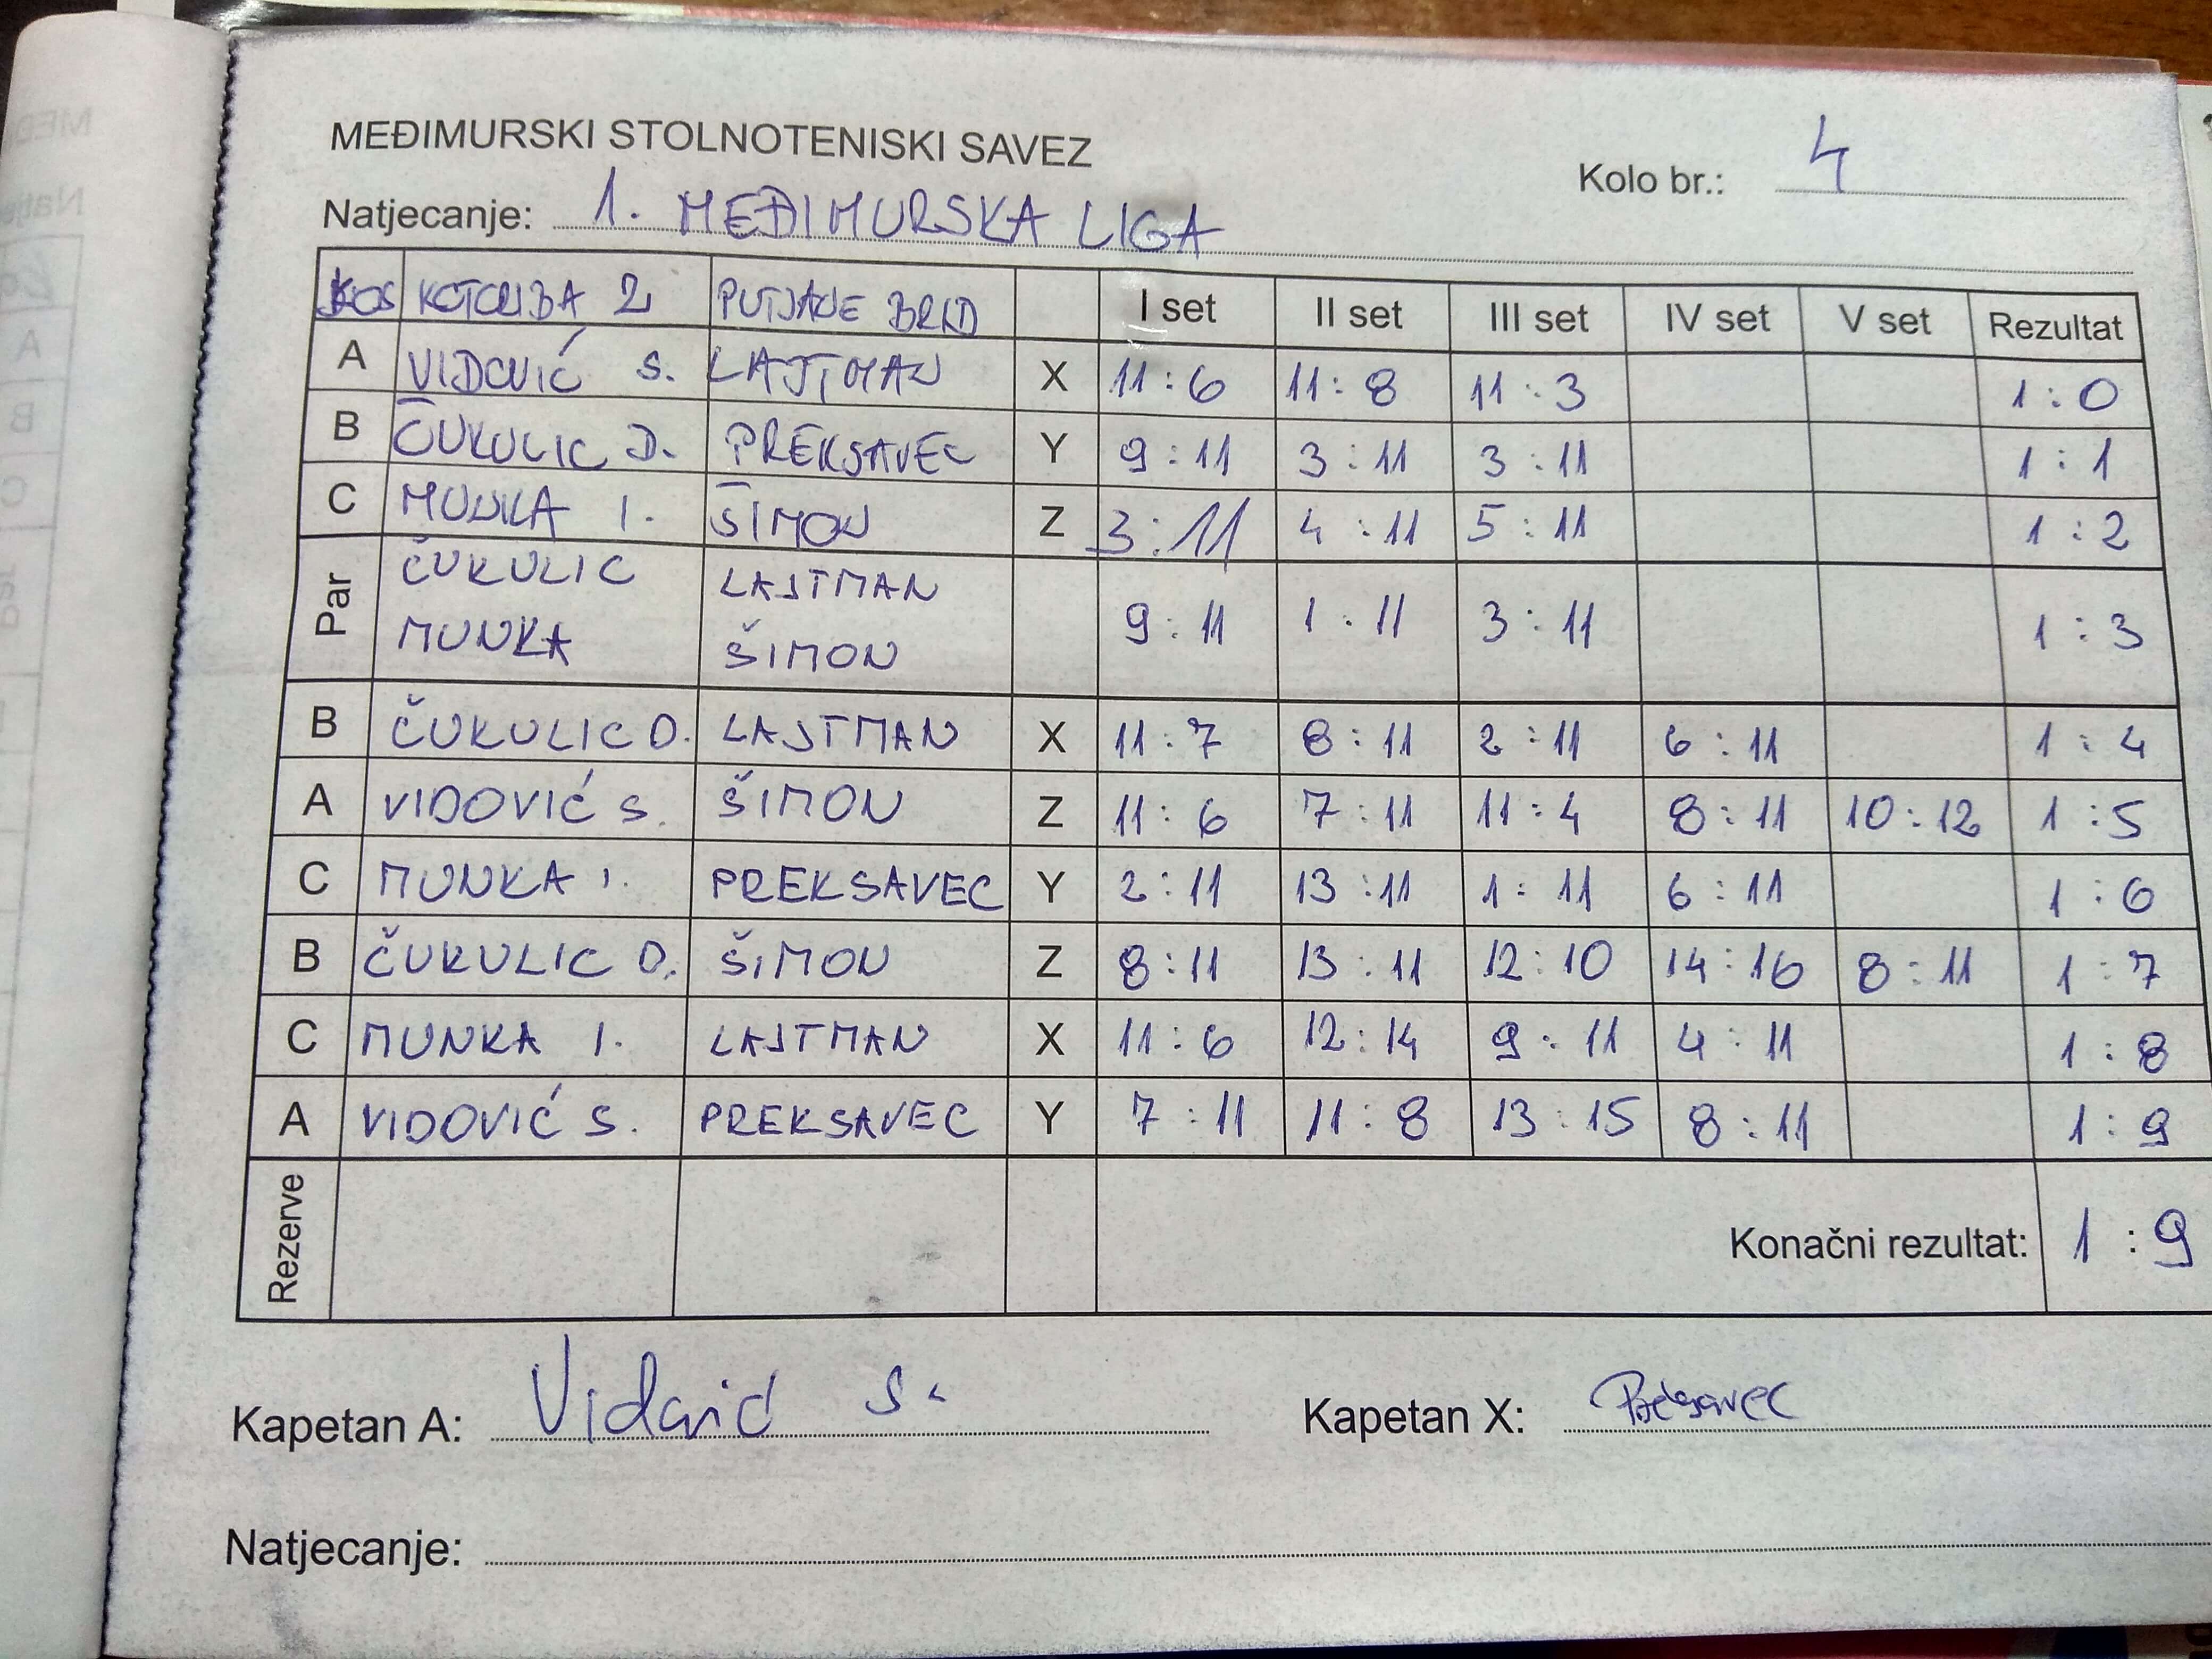 MEĐIMURSKI STOLNOTENISKI SAVEZ
Kolo br.: 4
Natjecanje: 1. MEĐIMURSKA LIGA
KOTORIBA 2 I set II set III set IV set V set Rezultat
A VIDOVIĆ S. LAJTMAN X 11:6 11:8 11:3 1:0
B ČUKULIC D. PREKSAVEC Y 9:11 3:11 3:11 1:1
C MUNKA I. ŠIMON Z 3:11 4:11 5:11 1:2
Par ČUKULIC LAJTMAN 9:11 1:11 3:11 1:3
MUNKA ŠIMON
B ČUKULIC D. LAJTMAN X 11:7 8:11 2:11 6:11 1:4
A VIDOVIĆ S. ŠIMON Z 11:6 7:11 11:4 8:11 10:12 1:5
C MUNKA I. PREKSAVEC Y 2:11 13:11 1:11 6:11 1:6
B ČUKULIC D. ŠIMON Z 8:11 13:11 12:10 14:16 8:11 1:7
C MUNKA I. LAJTMAN X 11:6 12:14 9:11 4:11 1:8
A VIDOVIĆ S. PREKSAVEC Y 7:11 11:8 13:15 8:11 1:9
Rezerve Konačni rezultat: 1:9
Kapetan A: Vidović S. Kapetan X: Preksavec
Natjecanje: